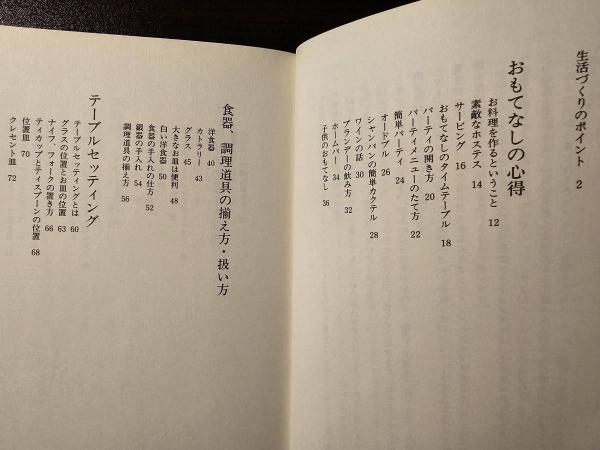 生活づくりのポイント 2
おもてなしの心得
お料理を作るということ 12
素敵なホステス 14
サービング 16
おもてなしのタイムテーブル 18
パーティの開き方 20
パーティメニューのたて方 22
簡単パーティ 24
オードブル 26
シャンパンの簡単カクテル 28
ワインの話 30
ブランデーの飲み方 32
ホームバー 34
子供のおもてなし 36
食器、調理道具の揃え方・扱い方
洋食器 40
カトラリー 43
グラス 45
大きなお皿は便利 48
白い洋食器 50
食器の手入れの仕方 52
銀器の手入れ 54
調理道具の揃え方 56
テーブルセッティング
テーブルセッティングとは 60
グラスの位置とお皿の位置 63
ナイフ、フォークの置き方 66
ティカップとティスプーンの位置 68
位置皿 70
クレセント皿 72